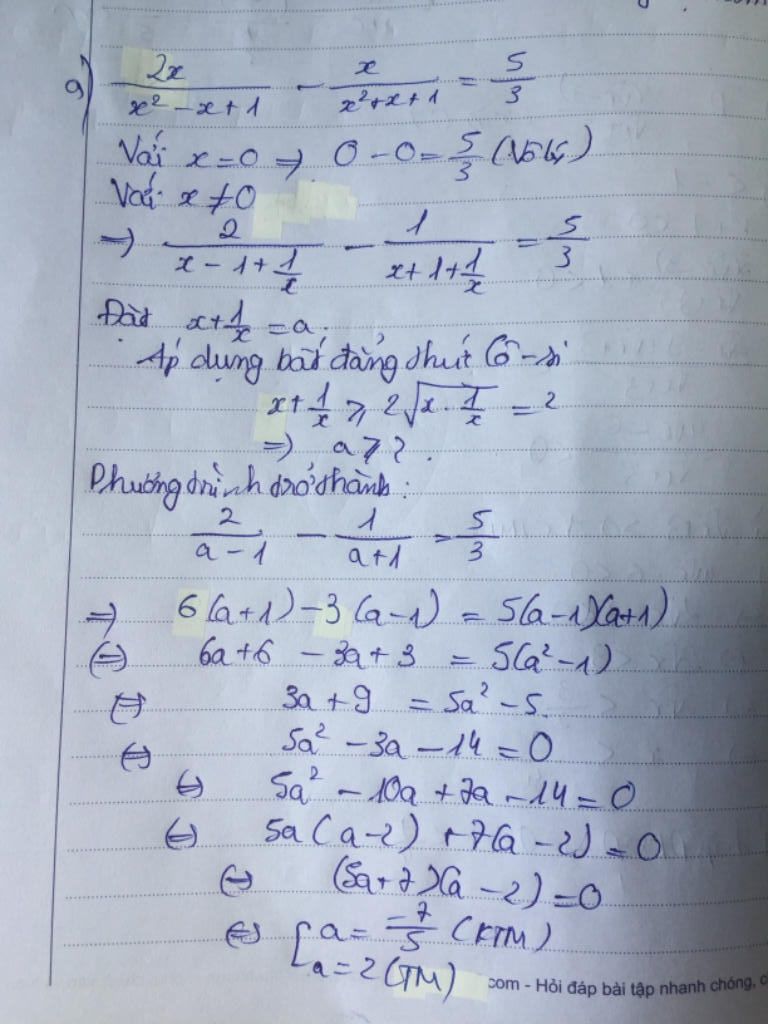 g) 2x/(x² - x + 1) - x/(x² + x + 1) = 5/3
Với x = 0 => 0 - 0 = 5/3 (Vô lý)
Với x ≠ 0
=> 2/(x - 1 + 1/x) - 1/(x + 1 + 1/x) = 5/3
Đặt x + 1/x = a.
Áp dụng bất đẳng thức Cô-si
x + 1/x ⩾ 2√(x · 1/x) = 2
=> a ⩾ 2.
Phương trình trở thành:
2/(a - 1) - 1/(a + 1) = 5/3
=> 6(a+1) - 3(a-1) = 5(a-1)(a+1)
⇔ 6a + 6 - 3a + 3 = 5(a² - 1)
⇔ 3a + 9 = 5a² - 5.
⇔ 5a² - 3a - 14 = 0
⇔ 5a² - 10a + 7a - 14 = 0
⇔ 5a(a-2) + 7(a-2) = 0
⇔ (5a+7)(a-2) = 0
⇔ [ a = -7/5 (KTM)
a = 2 (TM)
com - Hỏi đáp bài tập nhanh chóng, c